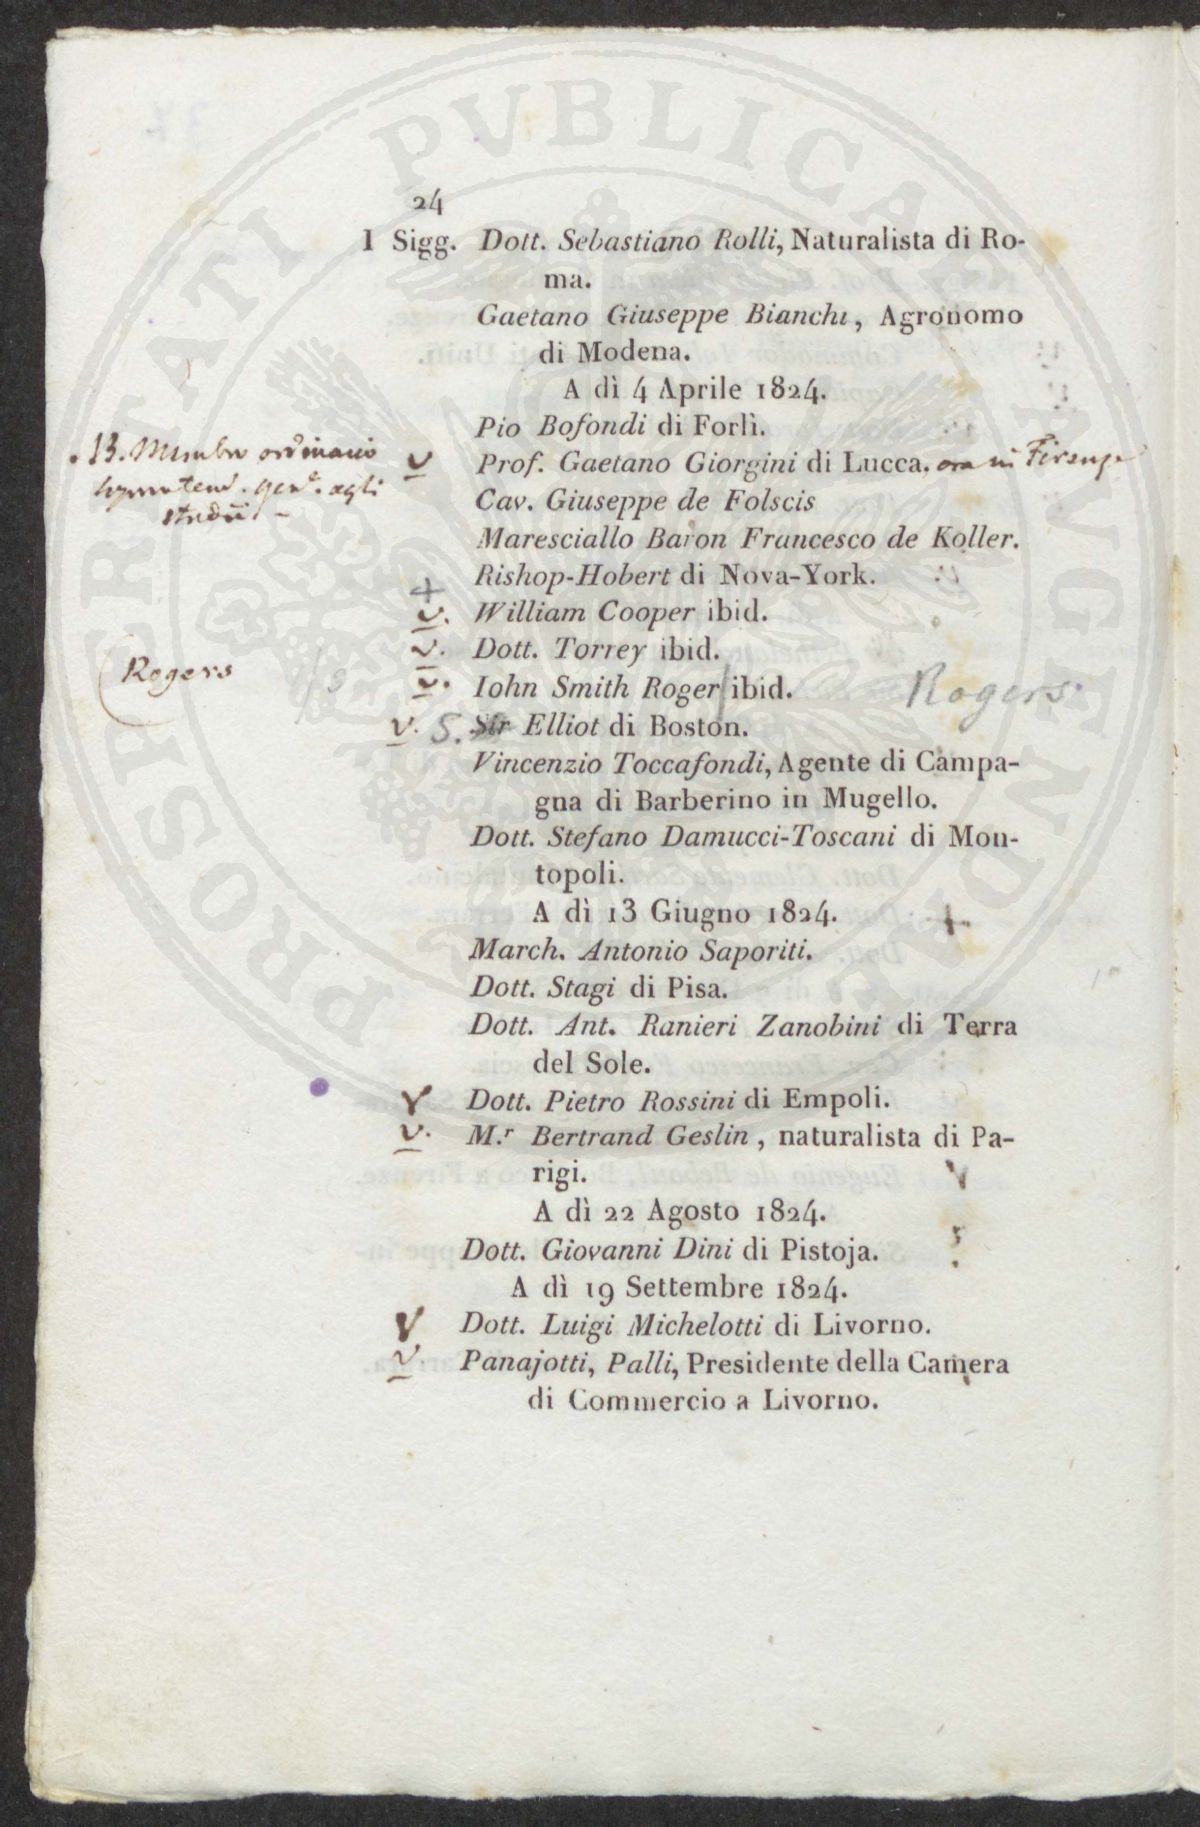 PROSPERITATI PVBLICAE AVGENDAE
24
I Sigg. Dott. Sebastiano Rolli, Naturalista di Ro-
ma.
Gaetano Giuseppe Bianchi, Agronomo
di Modena.
A dì 4 Aprile 1824.
Pio Bofondi di Forlì.
.13. Membro ordinario
v Prof. Gaetano Giorgini di Lucca. ora in Firenze
agli
studii. -
Cav. Giuseppe de Folscis
Maresciallo Baron Francesco de Koller.
Rishop-Hobert di Nova-York.
+
v. William Cooper ibid.
v. Dott. Torrey ibid.
Rogers /s v. Iohn Smith Roger/ ibid. Rogers
v. S. Sir Elliot di Boston.
Vincenzio Toccafondi, Agente di Campa-
gna di Barberino in Mugello.
Dott. Stefano Damucci-Toscani di Mon-
topoli.
A dì 13 Giugno 1824.
March. Antonio Saporiti.
Dott. Stagi di Pisa.
Dott. Ant. Ranieri Zanobini di Terra
del Sole.
v Dott. Pietro Rossini di Empoli.
v. M.r Bertrand Geslin, naturalista di Pa-
rigi.
A dì 22 Agosto 1824.
Dott. Giovanni Dini di Pistoja.
A dì 19 Settembre 1824.
v Dott. Luigi Michelotti di Livorno.
v Panajotti, Palli, Presidente della Camera
di Commercio a Livorno.